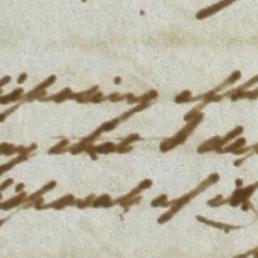 disposing of
that I de
disposal of it